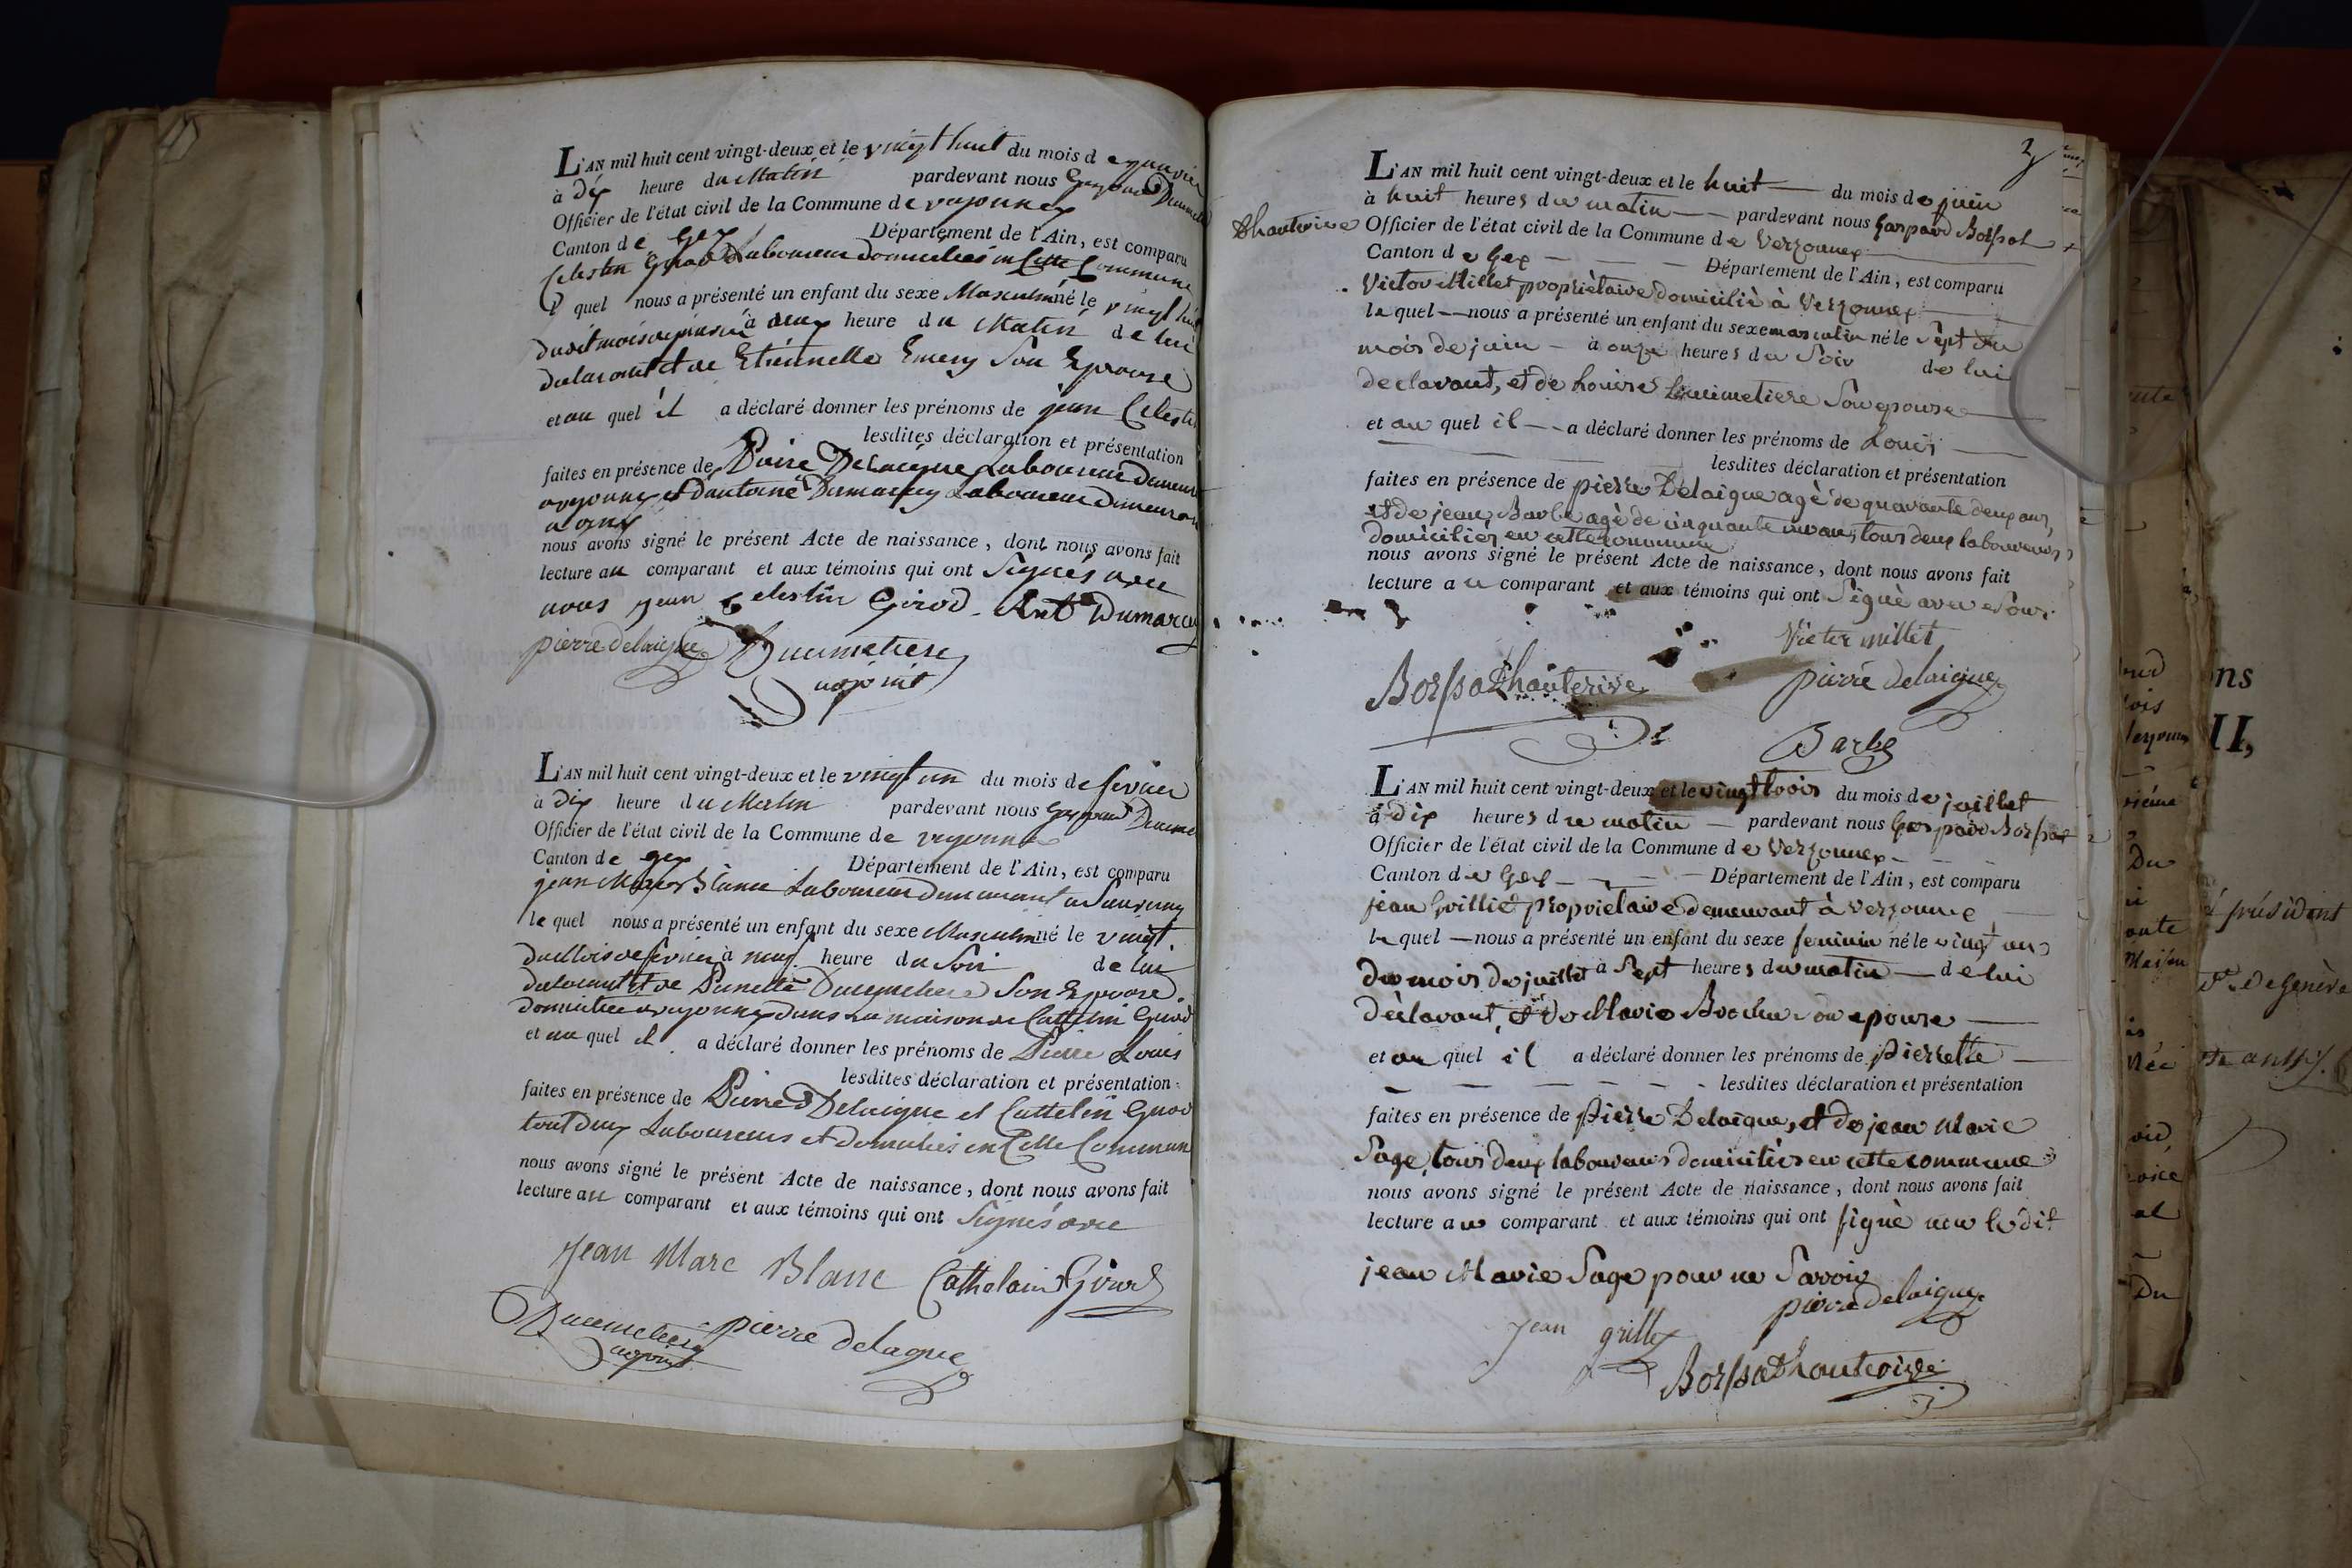 L'AN mil huit cent vingt-deux et le vingt huit du mois de janvier
à dix heure du Matin pardevant nous Gaspard
Officier de l'état civil de la Commune de
Canton de Gex Département de l'Ain, est comparu
Celestin Girod Laboureur domiciliés en Cette Commune
quel nous a présenté un enfant du sexe Masculin né le vingt
dudit mois de janvier à deux heure du Matin de lui
declarant et de Etiennette Emery Son Epouse
et au quel il a déclaré donner les prénoms de jean Celestin
lesdites déclaration et présentation
faites en présence de Pierre Delaigue Laboureur
et d'antoine Dumarcey Laboureur
nous avons signé le présent Acte de naissance, dont nous avons fait
lecture au comparant et aux témoins qui ont Signés avec
nous jean Celestin Girod Ant Dumarcey
pierre delaigue Ducimetiere
adjoint
L'AN mil huit cent vingt-deux et le vingt un du mois de fevrier
à dix heure du Matin pardevant nous Gaspard
Officier de l'état civil de la Commune de
Canton de gex Département de l'Ain, est comparu
jean Marc Blanc Laboureur demeurant a Sauverny
le quel nous a présenté un enfant du sexe Masculin né le vingt
du Mois de fevrier à neuf heure du Soir de lui
declarant et de Pernette Ducimetiere Son Epouse
domiciliée a dans la maison de Cattelin Girod
et au quel il a déclaré donner les prénoms de Pierre Louis
lesdites déclaration et présentation
faites en présence de Pierre Delaigue et Cattelin Girod
tout deux Laboureurs et domiciliés en Cette Commune
nous avons signé le présent Acte de naissance, dont nous avons fait
lecture au comparant et aux témoins qui ont Signés avec
Jean Marc Blanc Cathelain Girod
Ducimetiere pierre delague
adjoint
3
L'AN mil huit cent vingt-deux et le huit du mois de juin
à huit heures du matin pardevant nous Gaspard Borssat
Dhauterive Officier de l'état civil de la Commune de Verzonnex
Canton de Gex Département de l'Ain, est comparu
Victor Millet propriètaire domiciliè à Verzonnex
le quel nous a présenté un enfant du sexe masculin né le Sept du
mois de juin à onze heures du Soir de lui
declarant, et de Louise Ducimetiere Son epouse
et au quel il a déclaré donner les prénoms de Louis
lesdites déclaration et présentation
faites en présence de pierre Delaigue agè de quarante deux ans,
et de jean Barbe agè de cinquante un ans, tous deux laboureurs
domiciliès en cette commune
nous avons signé le présent Acte de naissance, dont nous avons fait
lecture au comparant et aux témoins qui ont Signè avec Nous.
Victor millet
Borssat Dhauterive pierre delaigue
Barbe
L'AN mil huit cent vingt-deux et le vingt trois du mois de juillet
à dix heures du matin pardevant nous Gaspard Borssat
Officier de l'état civil de la Commune de Verzonnex
Canton de Gex Département de l'Ain, est comparu
jean Grillet propriètaire demeurant à Verzonnex
le quel nous a présenté un enfant du sexe feminin né le vingt un
du mois de juillet à Sept heures du matin de lui
dèclarant, et de Marie Brochu son epouse
et au quel il a déclaré donner les prénoms de pierrette
lesdites déclaration et présentation
faites en présence de pierre Delaigue, et de jean Marie
Sage, tous deux laboureurs domiciliès en cette commune
nous avons signé le présent Acte de naissance, dont nous avons fait
lecture au comparant et aux témoins qui ont signè non ledit
jean Marie Sage pour ne Savoir
pierre delaigue
Jean grillet
Borssat Dhauterive